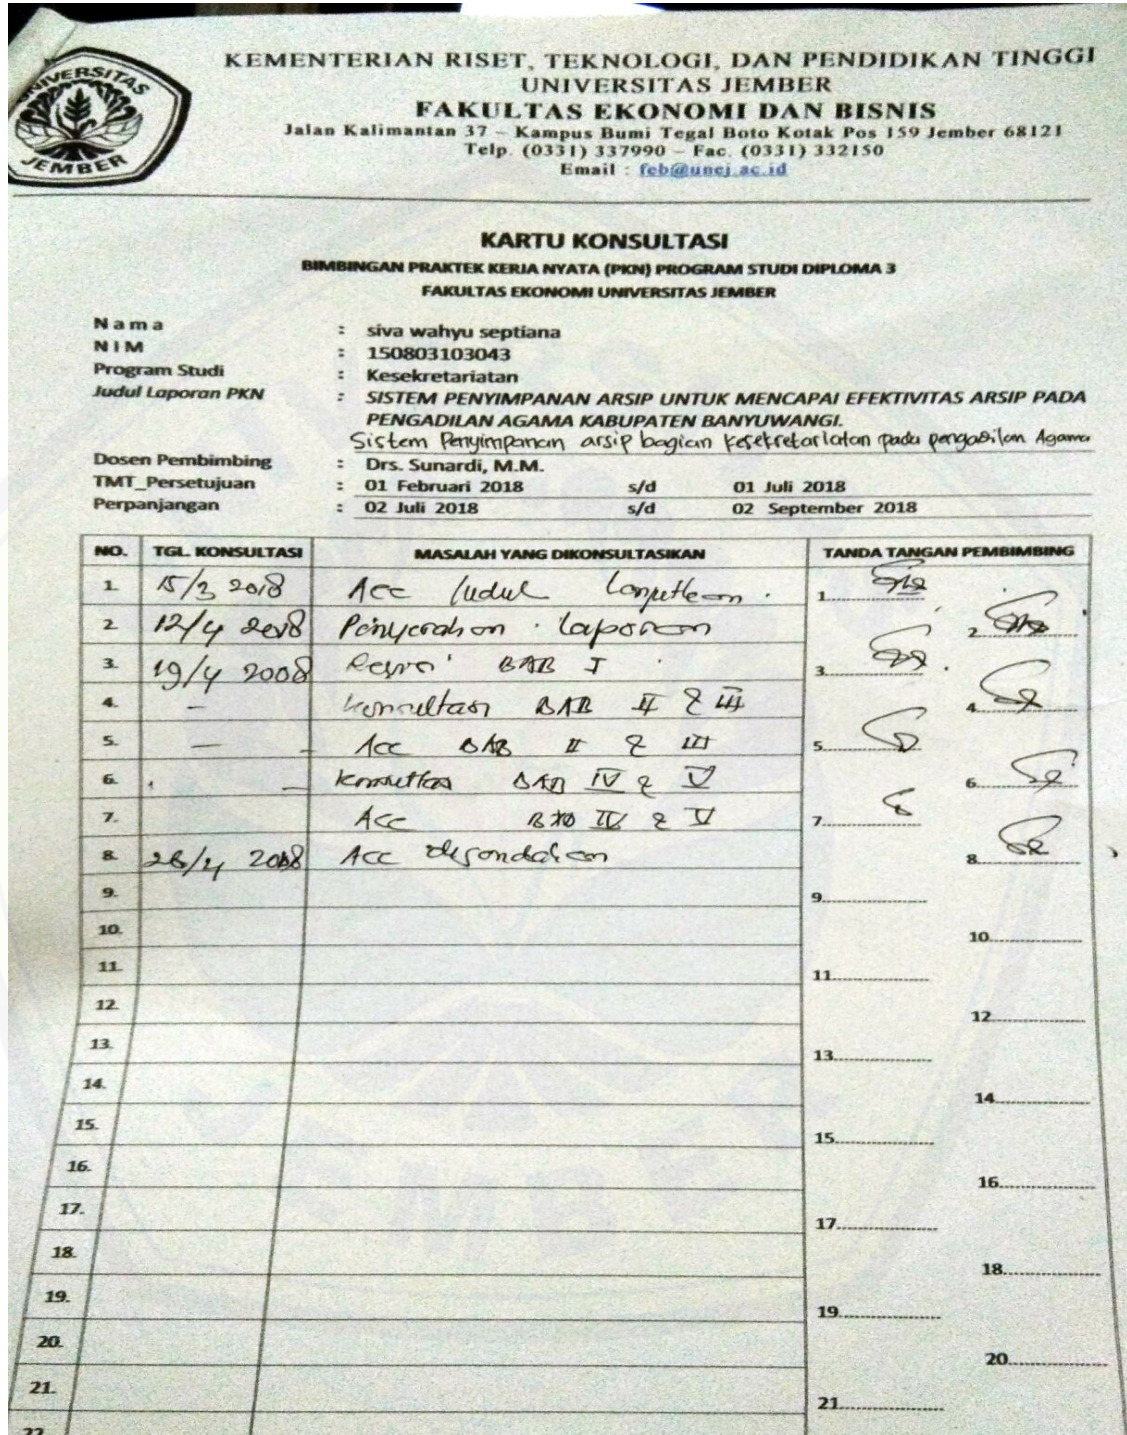 UNIVERSITAS
JEMBER
KEMENTERIAN RISET, TEKNOLOGI, DAN PENDIDIKAN TINGGI
UNIVERSITAS JEMBER
FAKULTAS EKONOMI DAN BISNIS
Jalan Kalimantan 37 – Kampus Bumi Tegal Boto Kotak Pos 159 Jember 68121
Telp. (0331) 337990 – Fac. (0331) 332150
Email : feb@unej.ac.id
KARTU KONSULTASI
BIMBINGAN PRAKTEK KERJA NYATA (PKN) PROGRAM STUDI DIPLOMA 3
FAKULTAS EKONOMI UNIVERSITAS JEMBER
Nama : siva wahyu septiana
NIM : 150803103043
Program Studi : Kesekretariatan
Judul Laporan PKN : SISTEM PENYIMPANAN ARSIP UNTUK MENCAPAI EFEKTIVITAS ARSIP PADA
PENGADILAN AGAMA KABUPATEN BANYUWANGI.
Sistem Penyimpanan arsip bagian kesekretariatan pada pengadilan Agama
Dosen Pembimbing : Drs. Sunardi, M.M.
TMT_Persetujuan : 01 Februari 2018 s/d 01 Juli 2018
Perpanjangan : 02 Juli 2018 s/d 02 September 2018
NO. TGL. KONSULTASI MASALAH YANG DIKONSULTASIKAN TANDA TANGAN PEMBIMBING
1. 15/3 2018 Acc Judul 1.
2. 12/4 2018 Penyerahan laporan 2.
3. 19/4 2008 Revisi BAB I 3.
4. – Konsultasi BAB II & III 4.
5. – Acc BAB II & III 5.
6. – Konsultasi BAB IV & V 6.
7. Acc BAB IV & V 7.
8. 26/4 2018 Acc 8.
9. 9.
10. 10.
11. 11.
12. 12.
13. 13.
14. 14.
15. 15.
16. 16.
17. 17.
18. 18.
19. 19.
20. 20.
21. 21.
22.